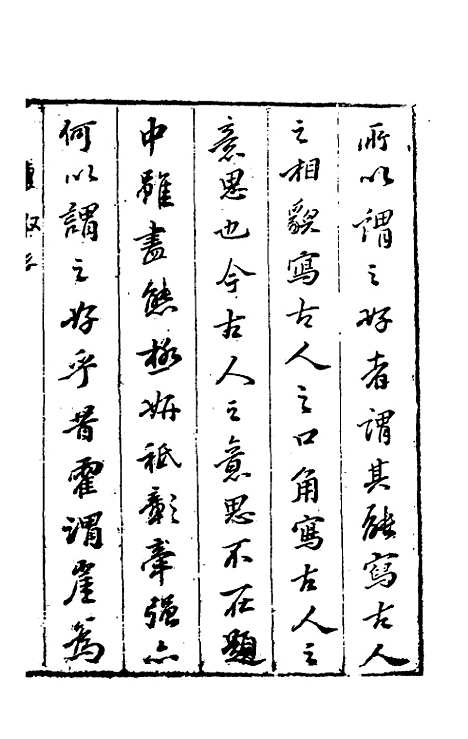 所以謂之好者謂其能寫古人
之相貌寫古人之口角寫古人之
意思也今古人之意思不在題
中雖盡態極妍祗彰牽强亦
何以謂之好乎昔霍謂崔為